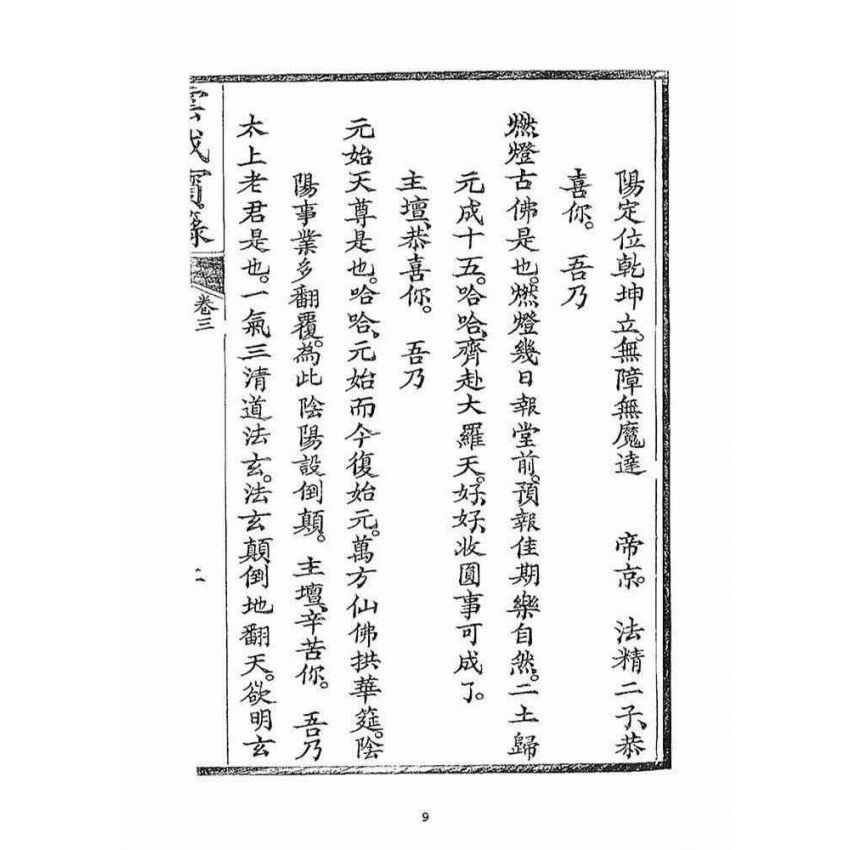 陽定位乾坤立。無障無魔達　帝京。　法精二子、恭
喜你。　吾乃
燃燈古佛是也。燃燈幾日報堂前。預報佳期樂自然。二土歸
元成十五。哈哈、齊赴大羅天。好、好、收圓事可成了。
主壇、恭喜你。　吾乃
元始天尊是也。哈哈、元始而今復始元。萬方仙佛拱華筵。陰
陽事業多翻覆。為此陰陽設倒顛。　主壇、辛苦你。　吾乃
太上老君是也。一氣三清道法玄。法玄顛倒地翻天。欲明玄
寶籙
卷三
二
9